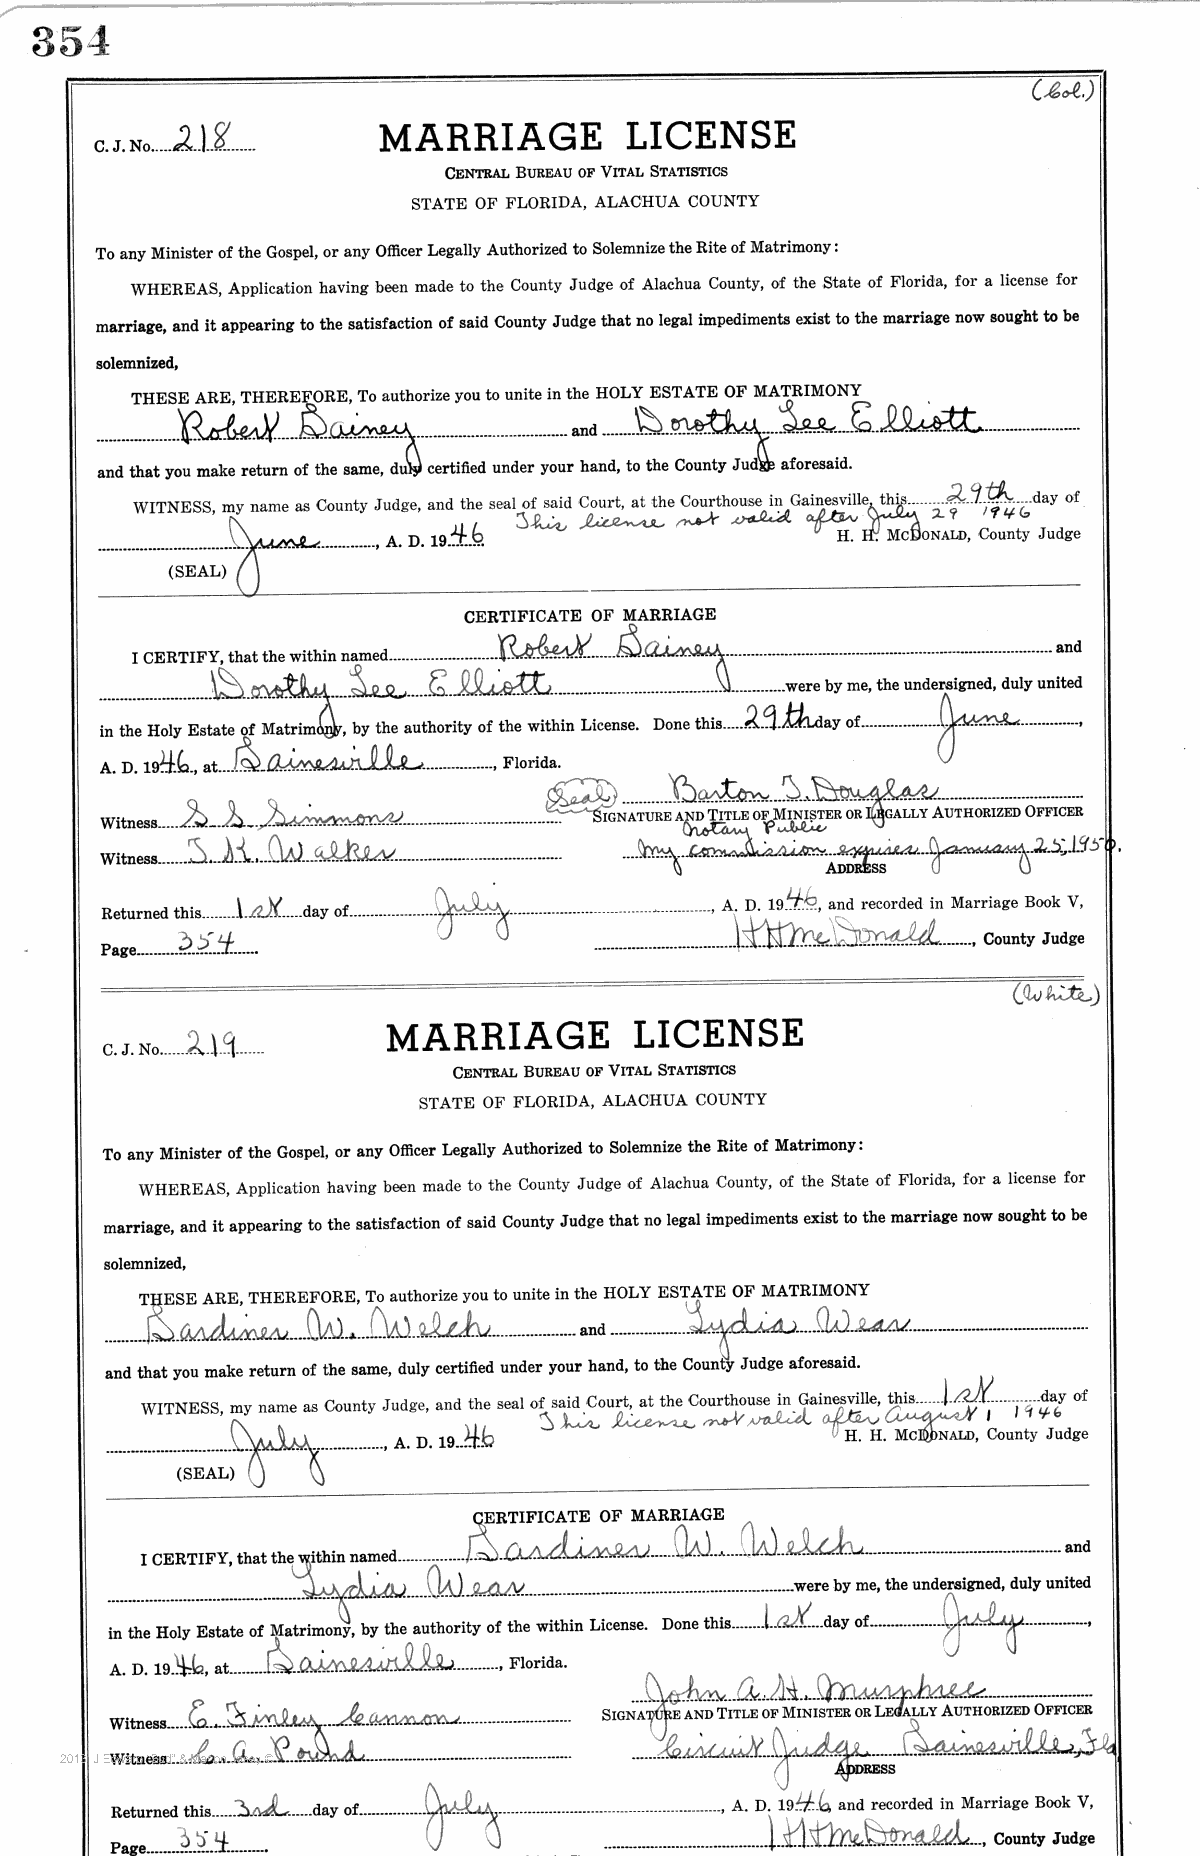 354
(Col.)
C. J. No. 218 MARRIAGE LICENSE
CENTRAL BUREAU OF VITAL STATISTICS
STATE OF FLORIDA, ALACHUA COUNTY
To any Minister of the Gospel, or any Officer Legally Authorized to Solemnize the Rite of Matrimony:
WHEREAS, Application having been made to the County Judge of Alachua County, of the State of Florida, for a license for
marriage, and it appearing to the satisfaction of said County Judge that no legal impediments exist to the marriage now sought to be
solemnized,
THESE ARE, THEREFORE, To authorize you to unite in the HOLY ESTATE OF MATRIMONY
Robert Gainey and Dorothy Lee Elliott
and that you make return of the same, duly certified under your hand, to the County Judge aforesaid.
WITNESS, my name as County Judge, and the seal of said Court, at the Courthouse in Gainesville, this 29th day of
This license not valid after July 29 1946
June, A. D. 1946 H. H. MCDONALD, County Judge
(SEAL)
CERTIFICATE OF MARRIAGE
I CERTIFY, that the within named Robert Gainey and
Dorothy Lee Elliott were by me, the undersigned, duly united
in the Holy Estate of Matrimony, by the authority of the within License. Done this 29th day of June,
A. D. 1946, at Gainesville, Florida.
(Seal) Barton T. Douglas
Witness S S Simmons SIGNATURE AND TITLE OF MINISTER OR LEGALLY AUTHORIZED OFFICER
Notary Public
Witness T. K. Walker My commission expires January 25, 1950.
ADDRESS
Returned this 1st day of July, A. D. 1946, and recorded in Marriage Book V,
Page 354 H H McDonald, County Judge
(White)
C. J. No. 219 MARRIAGE LICENSE
CENTRAL BUREAU OF VITAL STATISTICS
STATE OF FLORIDA, ALACHUA COUNTY
To any Minister of the Gospel, or any Officer Legally Authorized to Solemnize the Rite of Matrimony:
WHEREAS, Application having been made to the County Judge of Alachua County, of the State of Florida, for a license for
marriage, and it appearing to the satisfaction of said County Judge that no legal impediments exist to the marriage now sought to be
solemnized,
THESE ARE, THEREFORE, To authorize you to unite in the HOLY ESTATE OF MATRIMONY
Gardiner W. Welch and Lydia Wear
and that you make return of the same, duly certified under your hand, to the County Judge aforesaid.
WITNESS, my name as County Judge, and the seal of said Court, at the Courthouse in Gainesville, this 1st day of
This license not valid after August 1 1946
July, A. D. 1946 H. H. MCDONALD, County Judge
(SEAL)
CERTIFICATE OF MARRIAGE
I CERTIFY, that the within named Gardiner W. Welch and
Lydia Wear were by me, the undersigned, duly united
in the Holy Estate of Matrimony, by the authority of the within License. Done this 1st day of July,
A. D. 1946, at Gainesville, Florida.
John A. H. Murphree
Witness E. Finley Cannon SIGNATURE AND TITLE OF MINISTER OR LEGALLY AUTHORIZED OFFICER
Witness C. A. Pound Circuit Judge Gainesville, Fla
ADDRESS
Returned this 3rd day of July, A. D. 1946, and recorded in Marriage Book V,
Page 354 H H McDonald, County Judge